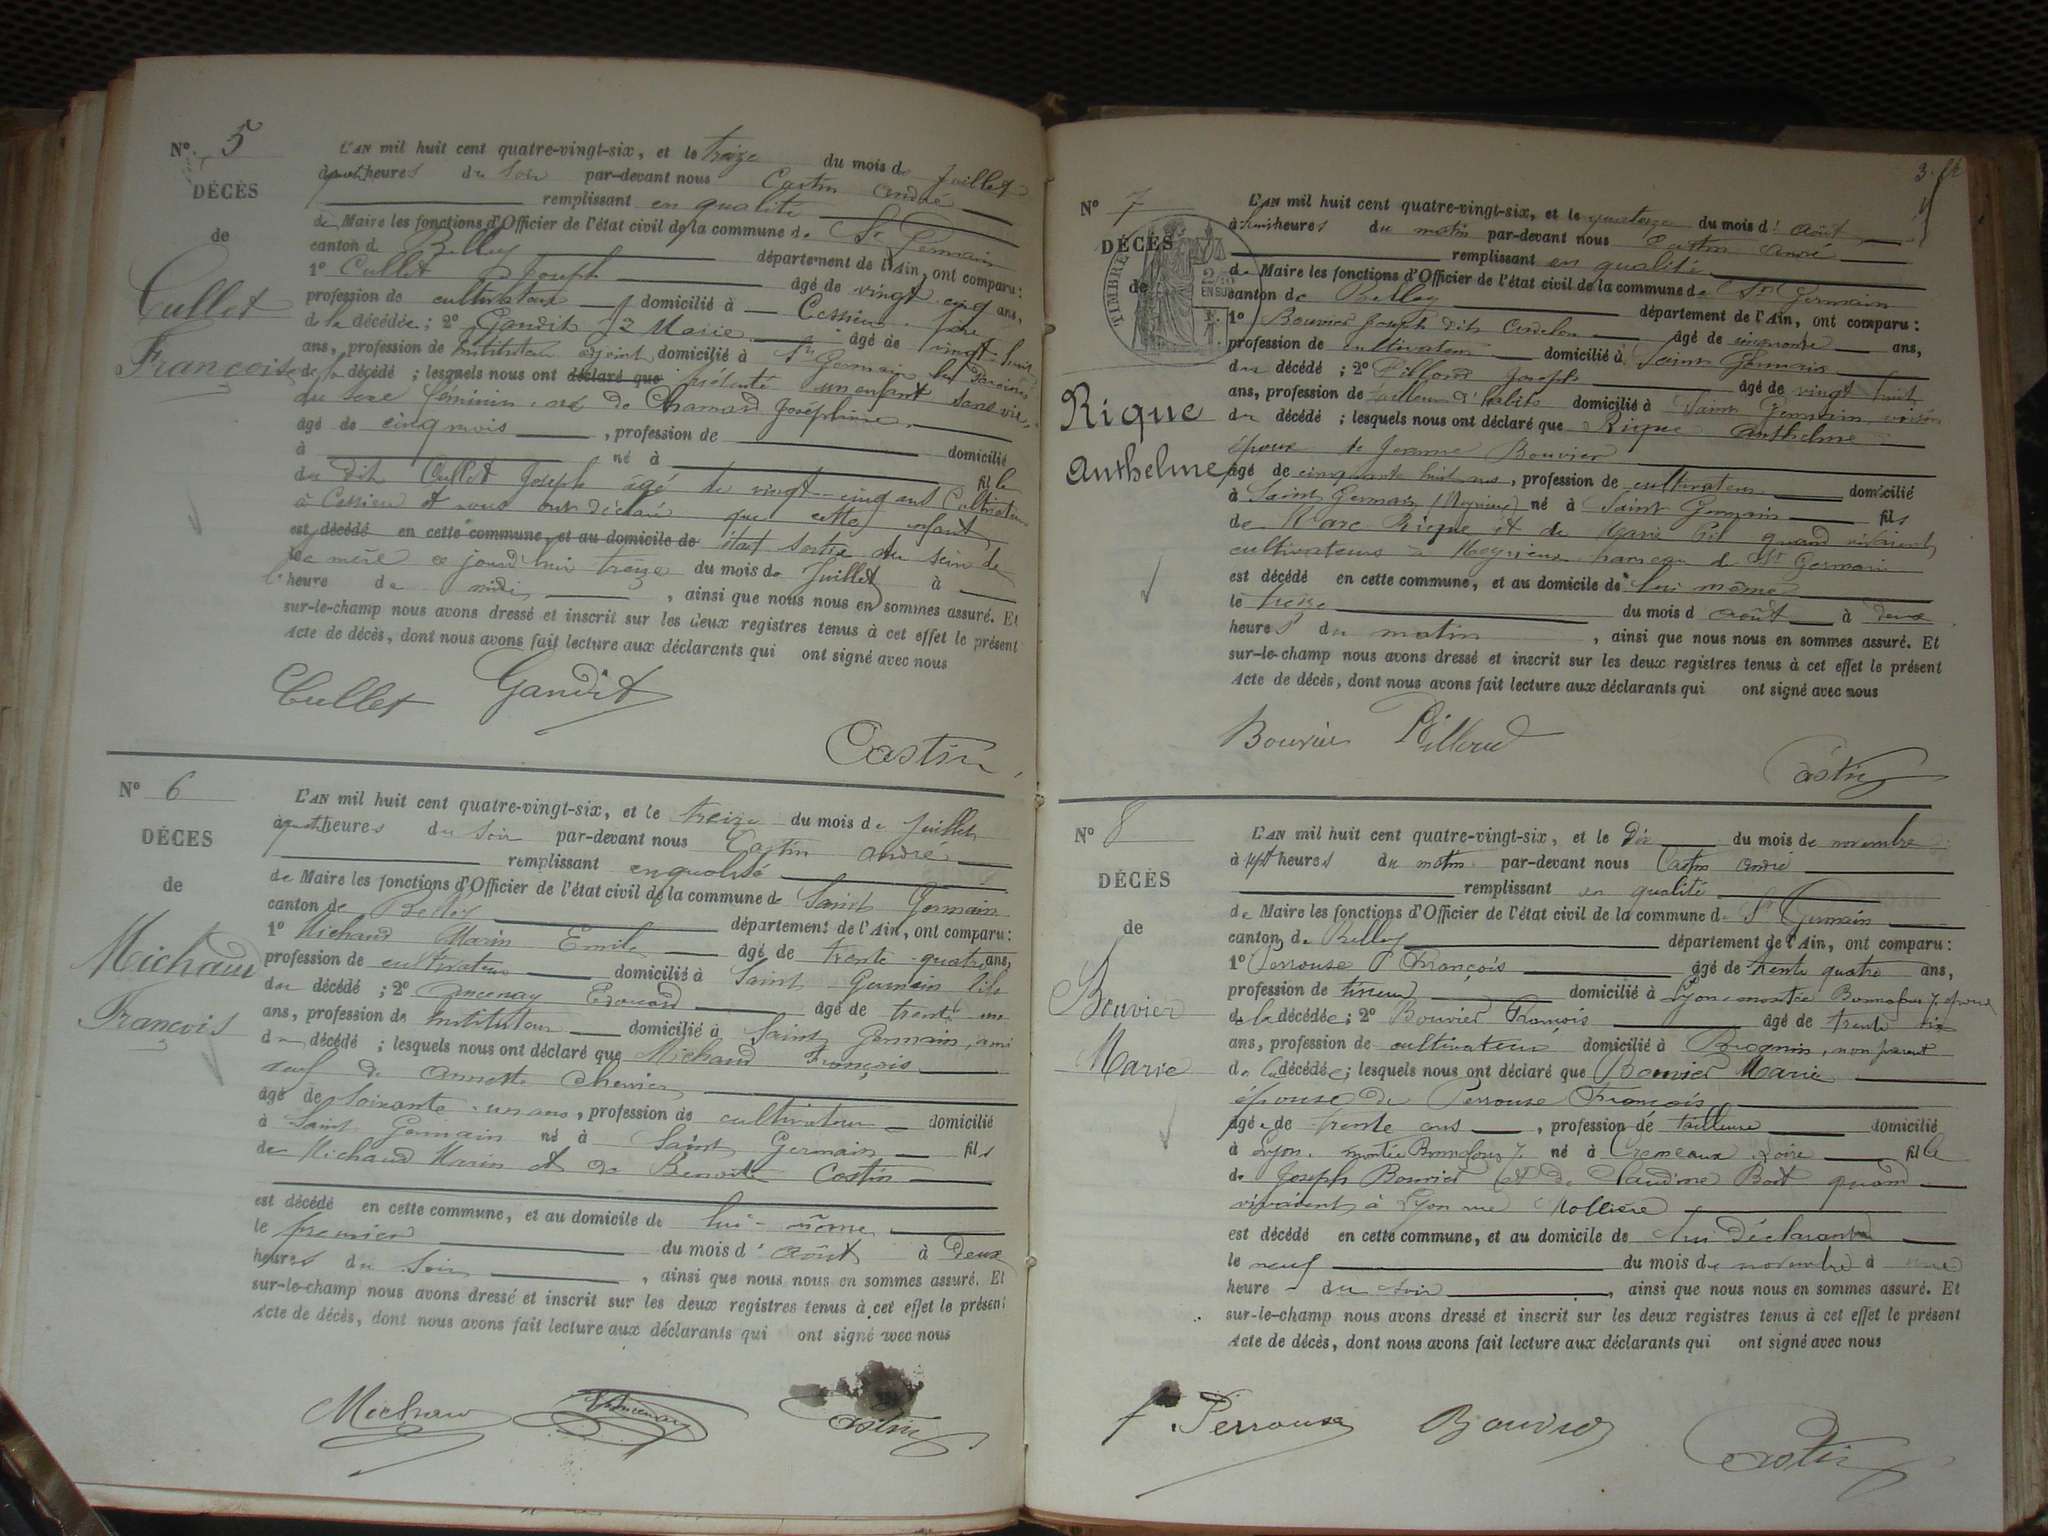 N° 5
DÉCÈS
de
Cullet
Françoise
L'AN mil huit cent quatre-vingt-six, et le treize du mois de Juillet
à quatre heures du soir par-devant nous Castin André
remplissant en qualité
de Maire les fonctions d'Officier de l'état civil de la commune de St Germain
canton de Belley département de l'Ain, ont comparu :
1° Cullet Joseph âgé de vingt-cinq ans,
profession de cultivateur domicilié à Cessieu père
de la décédée ; 2° Gandit Marie âgé de vingt-huit
ans, profession de Instituteur adjoint domicilié à St Germain les Paroisses
de la décédé ; lesquels nous ont déclaré que présenté un enfant sans vie,
du sexe féminin, né de Chamard Joséphine
âgé de cinq mois , profession de
à né à domicilié
du dit Cullet Joseph âgé de vingt-cinq ans Cultivateur fille
à Cessieu et nous ont déclaré que cette enfant
est décédé en cette commune, et au domicile de était sortie du sein de
la mère ce jourd'hui treize du mois de Juillet à
l'heure de midi , ainsi que nous nous en sommes assuré. Et
sur-le-champ nous avons dressé et inscrit sur les deux registres tenus à cet effet le présent
Acte de décès, dont nous avons fait lecture aux déclarants qui ont signé avec nous
Cullet Gandit
Castin
N° 6
DÉCÈS
de
Michaud
François
L'AN mil huit cent quatre-vingt-six, et le treize du mois de Juillet
à quatre heures du soir par-devant nous Castin André
remplissant en qualité
de Maire les fonctions d'Officier de l'état civil de la commune de Saint Germain
canton de Belley département de l'Ain, ont comparu :
1° Michaud Marin Emile âgé de trente-quatre ans,
profession de cultivateur domicilié à Saint Germain fils
du décédé ; 2° Ancenay Edouard âgé de trente un
ans, profession de Instituteur domicilié à Saint Germain, ami
du décédé ; lesquels nous ont déclaré que Michaud François
veuf de Annette Chevrier
âgé de soixante-un ans, profession de cultivateur domicilié
à Saint Germain né à Saint Germain fils
de Michaud Marin et de Benoîte Castin
est décédé en cette commune, et au domicile de lui-même
le premier du mois d'Août à Deux
heures du soir , ainsi que nous nous en sommes assuré. Et
sur-le-champ nous avons dressé et inscrit sur les deux registres tenus à cet effet le présent
Acte de décès, dont nous avons fait lecture aux déclarants qui ont signé avec nous
Michaud Ancenay Castin
3.
N° 7
DÉCÈS
de
TIMBRE
2/10
EN SUS
Rique
Anthelme
L'AN mil huit cent quatre-vingt-six, et le quatorze du mois d'Août
à huit heures du matin par-devant nous Castin André
remplissant en qualité
de Maire les fonctions d'Officier de l'état civil de la commune de St Germain
canton de Belley département de l'Ain, ont comparu :
1° Bouvier Joseph dit âgé de cinquante ans,
profession de cultivateur domicilié à Saint Germain
du décédé ; 2° Pilloud Joseph âgé de vingt huit
ans, profession de tailleur d'habits domicilié à Saint Germain, voisin
du décédé ; lesquels nous ont déclaré que Rique Anthelme
époux de Jeanne Bouvier
âgé de cinquante huit ans, profession de cultivateur domicilié
à Saint Germain (Meyrieu) né à Saint Germain fils
de Marc Rique et de Marie Pil quand vivaient
cultivateurs à Meyrieu hameau de St Germain
est décédé en cette commune, et au domicile de lui même
le treize du mois d'Août à deux
heures du matin , ainsi que nous nous en sommes assuré. Et
sur-le-champ nous avons dressé et inscrit sur les deux registres tenus à cet effet le présent
Acte de décès, dont nous avons fait lecture aux déclarants qui ont signé avec nous
Bouvier Pilloud
Castin
N° 8
DÉCÈS
de
Bouvier
Marie
L'AN mil huit cent quatre-vingt-six, et le Dix du mois de novembre
à sept heures du matin par-devant nous Castin André
remplissant en qualité
de Maire les fonctions d'Officier de l'état civil de la commune de St Germain
canton de Belley département de l'Ain, ont comparu :
1° Perrouse François âgé de trente quatre ans,
profession de tisseur domicilié à Lyon, montée Bonnafous 7, époux
de la décédée ; 2° Bouvier François âgé de trente six
ans, profession de cultivateur domicilié à Brognin, non parent
de la décédée ; lesquels nous ont déclaré que Bouvier Marie
épouse de Perrouse François
âgée de trente ans , profession de tailleuse domicilié
à Lyon, montée Bonnafous 7 né à Cremeaux Loire fille
de Joseph Bouvier et de Claudine Bost quand
vivaient à Lyon rue Mollière
est décédé en cette commune, et au domicile de lui déclarant
le neuf du mois de novembre à une
heure du soir , ainsi que nous nous en sommes assuré. Et
sur-le-champ nous avons dressé et inscrit sur les deux registres tenus à cet effet le présent
Acte de décès, dont nous avons fait lecture aux déclarants qui ont signé avec nous
f. Perrouse Bouvier Castin